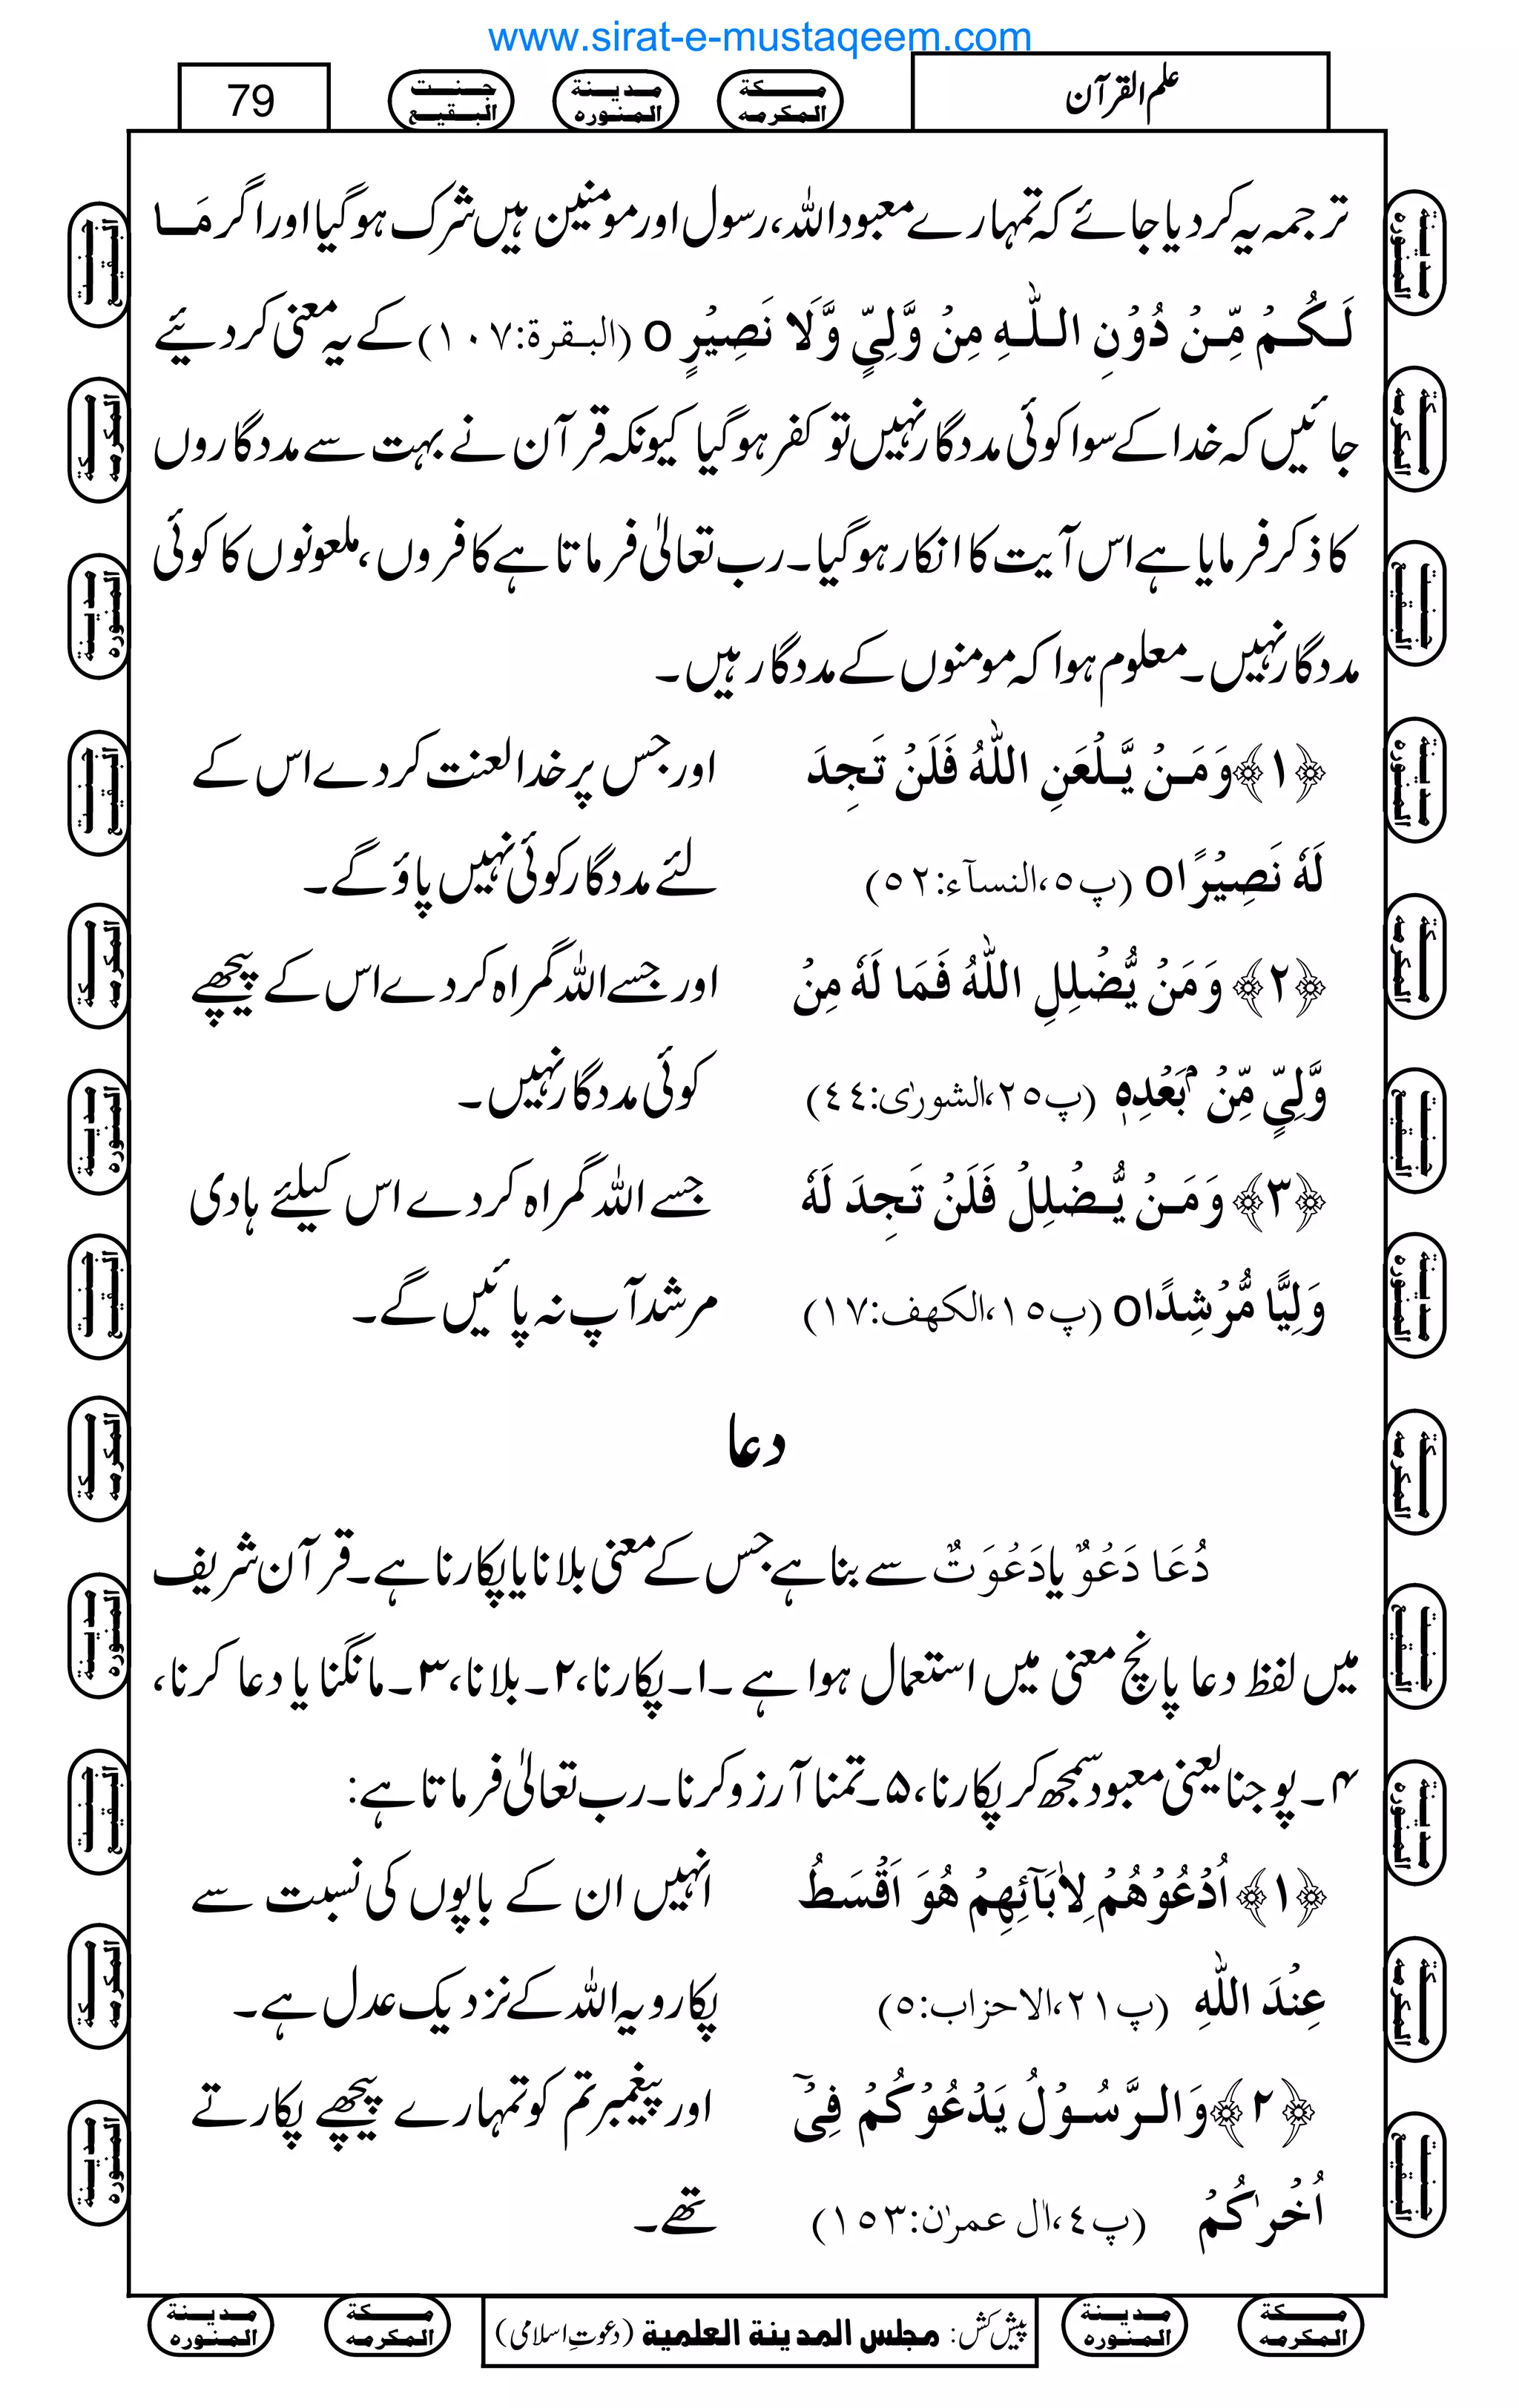 www.sirat-e-mustaqeem.com
علم القرآن
مــكة المكرمه
مــديــنة المنــوره
جـــنــت البــقيــع
79
ترجمہ یہ کر دیا جائے کہ تمہارے معبود اللہ، رسول اور مومنین ہیں شرک ہو گیا اور اگر مَا
لَكُمْ مِّنْ دُوْنِ اللّٰهِ مِنْ وَّلِیٍّ وَّلَا نَصِیْرٍ o (البقرة:۱۰۷) کے یہ معنی کر دیئے
جائیں کہ خدا کے سوا کوئی مددگار نہیں تو کفر ہو گیا کیونکہ قرآن نے بہت سے مددگاروں
کا ذکر فرمایا ہے اس آیت کا انکار ہو گیا۔ رب تعالٰی فرماتا ہے کافروں، ملعونوں کا کوئی
مددگار نہیں۔ معلوم ہوا کہ مومنوں کے مددگار ہیں۔
﴿۱﴾ وَمَنْ یَّلْعَنِ اللّٰهُ فَلَنْ تَجِدَ
لَهٗ نَصِیْرًا o (پ۵،النسآء:۵۲)
اور جس پر خدا لعنت کر دے اس کے
لئے مددگار کوئی نہیں پاؤ گے۔
﴿۲﴾ وَمَنْ یُّضْلِلِ اللّٰهُ فَمَا لَهٗ مِنْ
وَّلِیٍّ مِّنْۢ بَعْدِهٖ (پ۲۵،الشورٰی:٤٤)
اور جسے اللہ گمراہ کر دے اس کے پیچھے
کوئی مددگار نہیں۔
﴿۳﴾ وَمَنْ یُّضْلِلْ فَلَنْ تَجِدَ لَهٗ
وَلِیًّا مُّرْشِدًا o (پ۱۵،الکهف:۱۷)
جسے اللہ گمراہ کر دے اس کیلئے ہادی
مرشد آپ نہ پائیں گے۔
دعا
دُعَا دَعْوٌ یا دَعْوَتٌ سے بنا ہے جس کے معنی بلانا یا پکارنا ہے۔ قرآن شریف
میں لفظ دعا پانچ معنی میں استعمال ہوا ہے۔ ۱۔ پکارنا، ۲۔ بلانا، ۳۔ مانگنا یا دعا کرنا،
۴۔ پوجنا یعنی معبود سمجھ کر پکارنا، ۵۔ تمنا آرزو کرنا۔ رب تعالٰی فرماتا ہے:
﴿۱﴾ اُدْعُوْهُمْ لِاٰبَآئِهِمْ هُوَ اَقْسَطُ
عِنْدَ اللّٰهِ (پ۲۱،الاحزاب:۵)
انہیں ان کے باپوں کی نسبت سے
پکارو یہ اللہ کے نزدیک عدل ہے۔
﴿۲﴾ وَالرَّسُوْلُ یَدْعُوْكُمْ فِیْۤ
اُخْرٰىكُمْ (پ٤،اٰل عمرٰن:۱۵۳)
اور پیغمبر تم کو تمہارے پیچھے پکارتے
تھے۔
پیش کش: مجلس المدینة العلمیة (دعوتِ اسلامی)